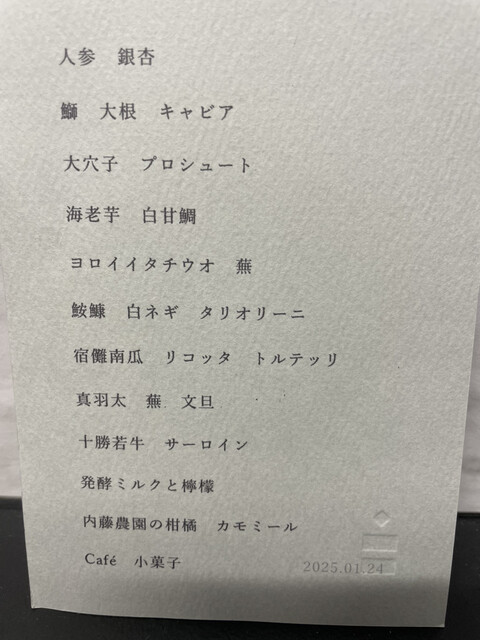 人参　銀杏
鰤　大根　キャビア
大穴子　プロシュート
海老芋　白甘鯛
ヨロイイタチウオ　蕪
鮟鱇　白ネギ　タリオリーニ
宿儺南瓜　リコッタ　トルテッリ
真羽太　蕪　文旦
十勝若牛　サーロイン
発酵ミルクと檸檬
内藤農園の柑橘　カモミール
Café　小菓子
2025.01.24